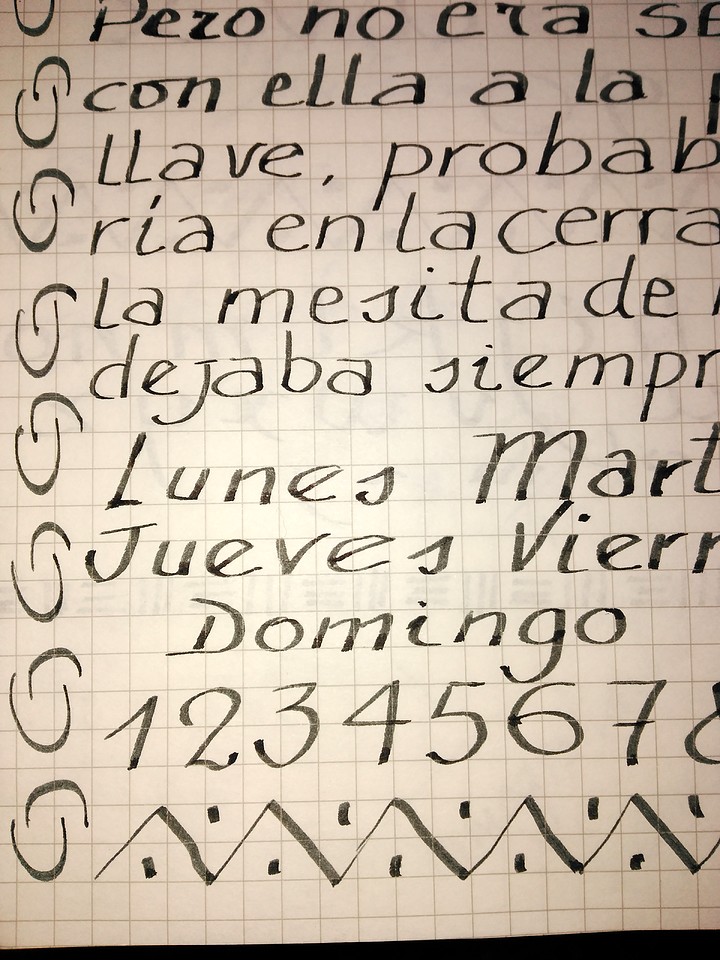 Pero no era
con ella a la
llave, probab
ría en la cerra
la mesita de
dejaba siempr
Lunes Mart
Jueves Viern
Domingo
1 2 3 4 5 6 7 8